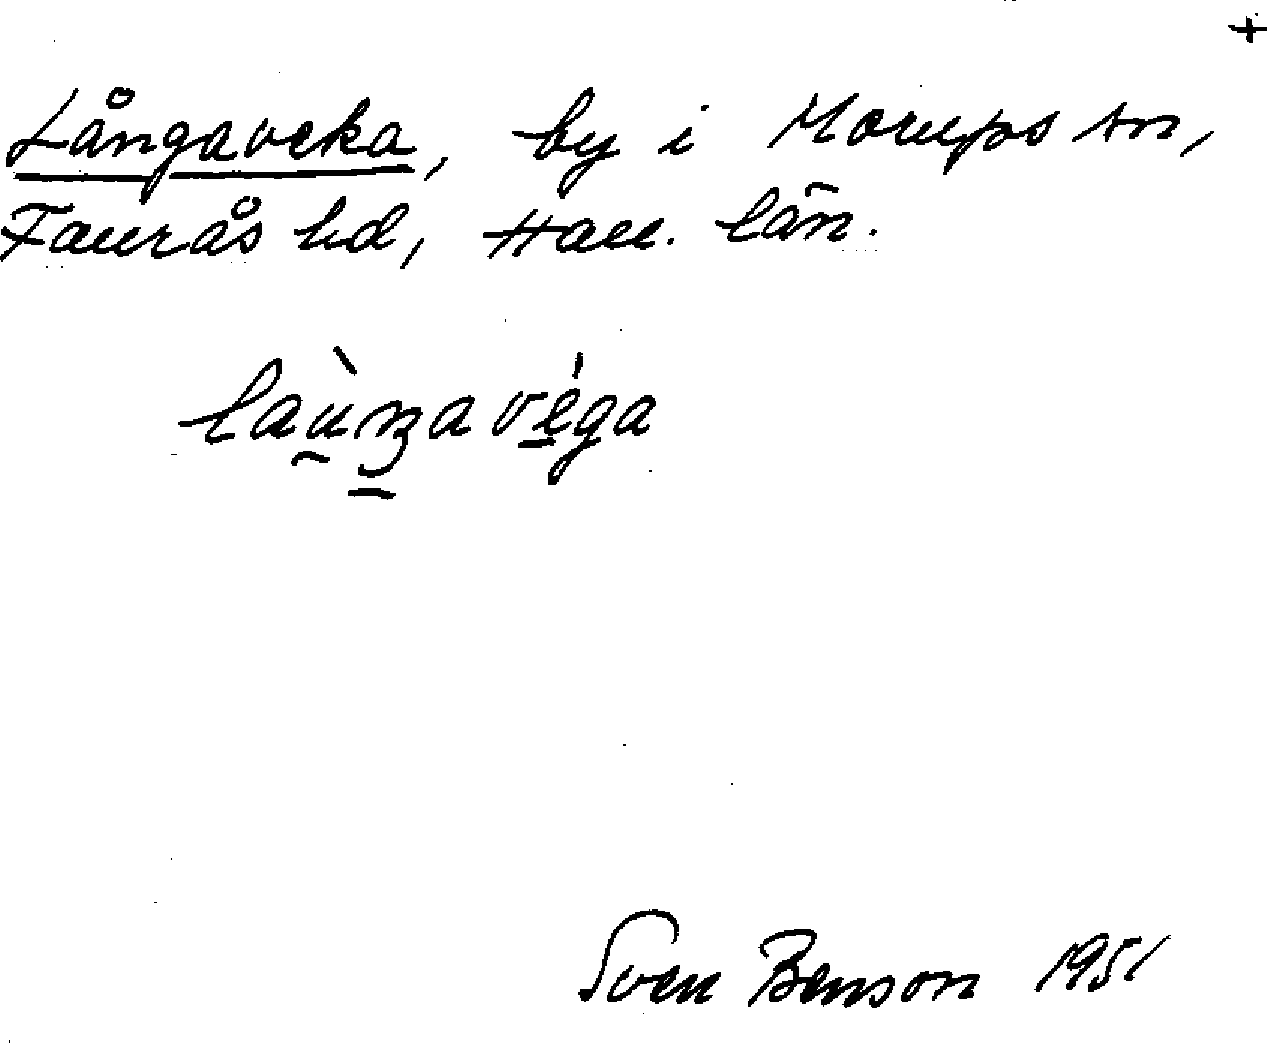 +
Långaveka, by i Morups sn,
Faurås hd, Hall. län.
Sven Benson 1951